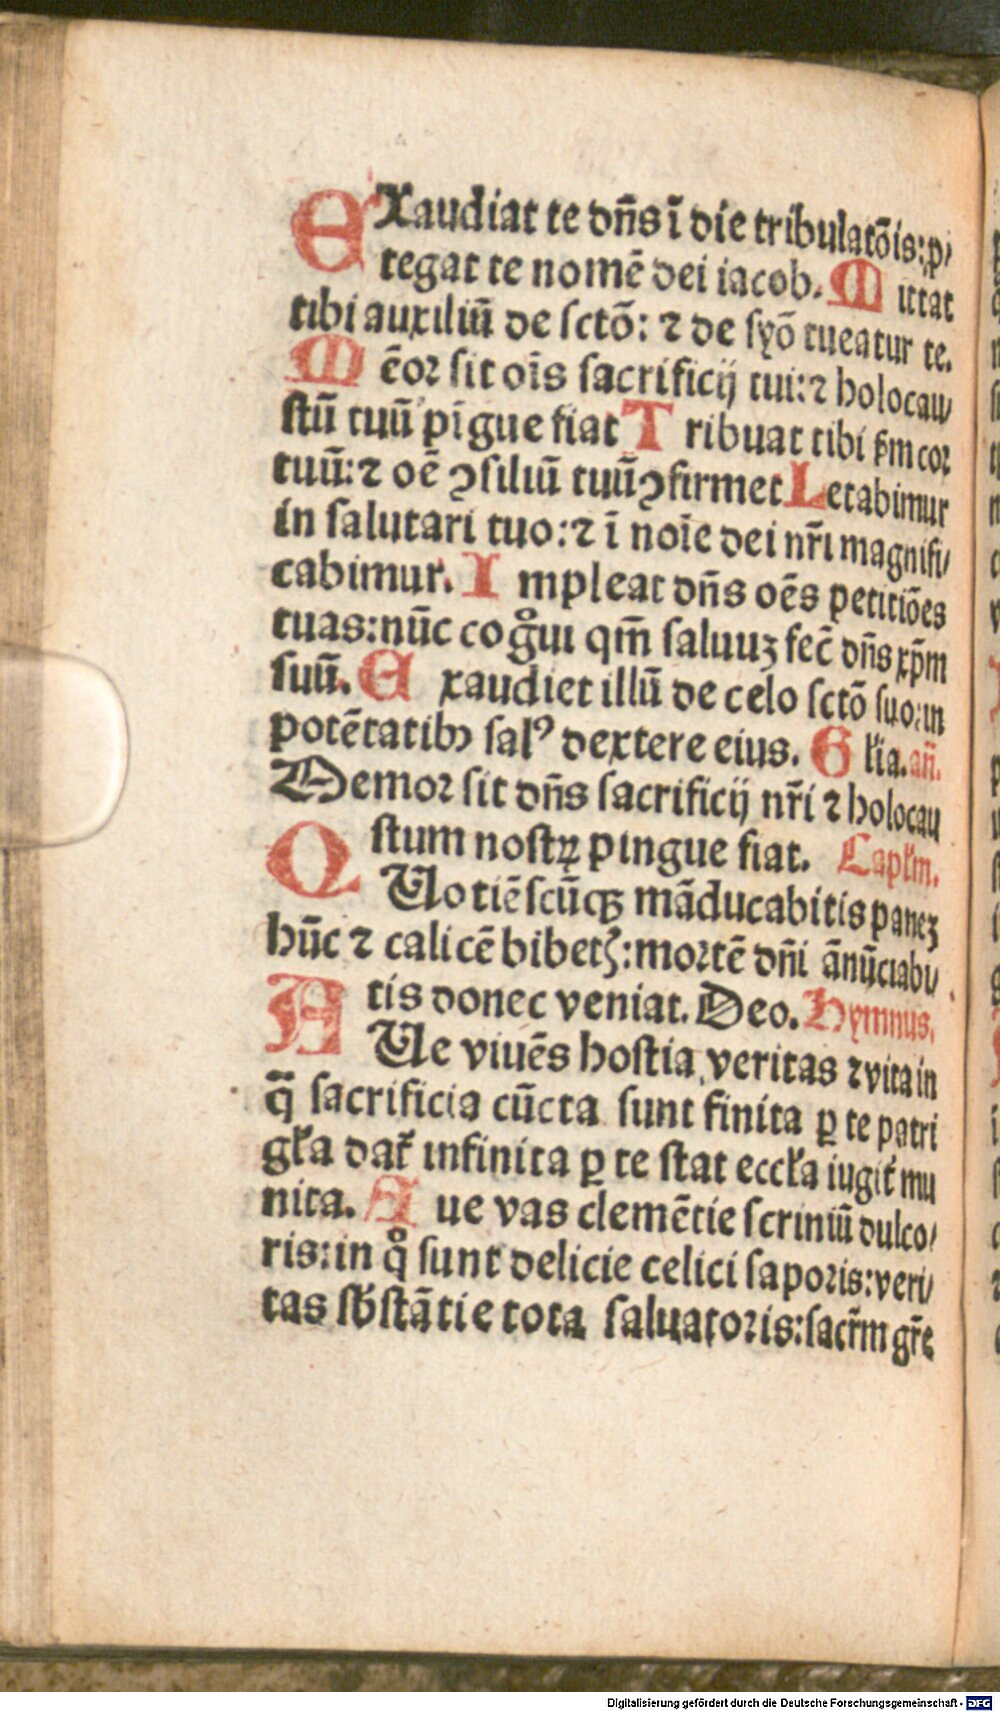 EXaudiat te dn̄s ī die tribulatōis: p/
tegat te nomē dei iacob. Mittat
tibi auxiliū de sctō: ⁊ de syō tueatur te.
Mēoꝛ sit oīs sacrificij tui: ⁊ holocau/
stū tuū pīgue fiat Tribuat tibi ẜm coꝛ
tuū: ⁊ oē ↄsiliū tuū ↄfirmet Letabimur
in salutari tuo: ⁊ ī noīe dei nr̄i magnifi/
cabimur. Impleat dn̄s oēs petitiōes
tuas: nūc cogͦui qm̄ saluuꝫ fec̄ dn̄s xp̄m
suū. Exaudiet illū de celo sctō suo: in
potētatibꝰ salꝰ dextere eius. Gl'ia. an̄.
Memoꝛ sit dn̄s sacrificij nr̄i ⁊ holocau
stum nostrꝝ pingue fiat. Capl'm.
QUotiēscūqꝫ māducabitis paneꝫ
hūc ⁊ calicē bibetꝭ: moꝛtē dn̄i ānūciabi/
tis donec veniat. Deo. Hymnus.
AUe viuēs hostia veritas ⁊ vita in
q̄ sacrificia cūcta sunt finita ꝑ te patri
gl'a dat̄ infinita ꝑ te stat eccl'a iugit̄ mu
nita. Aue vas clemētie scriniū dulco/
ris: in qͦ sunt delicie celici sapoꝛis: veri/
tas sb̄stātie tota saluatoꝛis: sacr̄m gr̄e
Digitalisierung gefördert durch die Deutsche Forschungsgemeinschaft - DFG